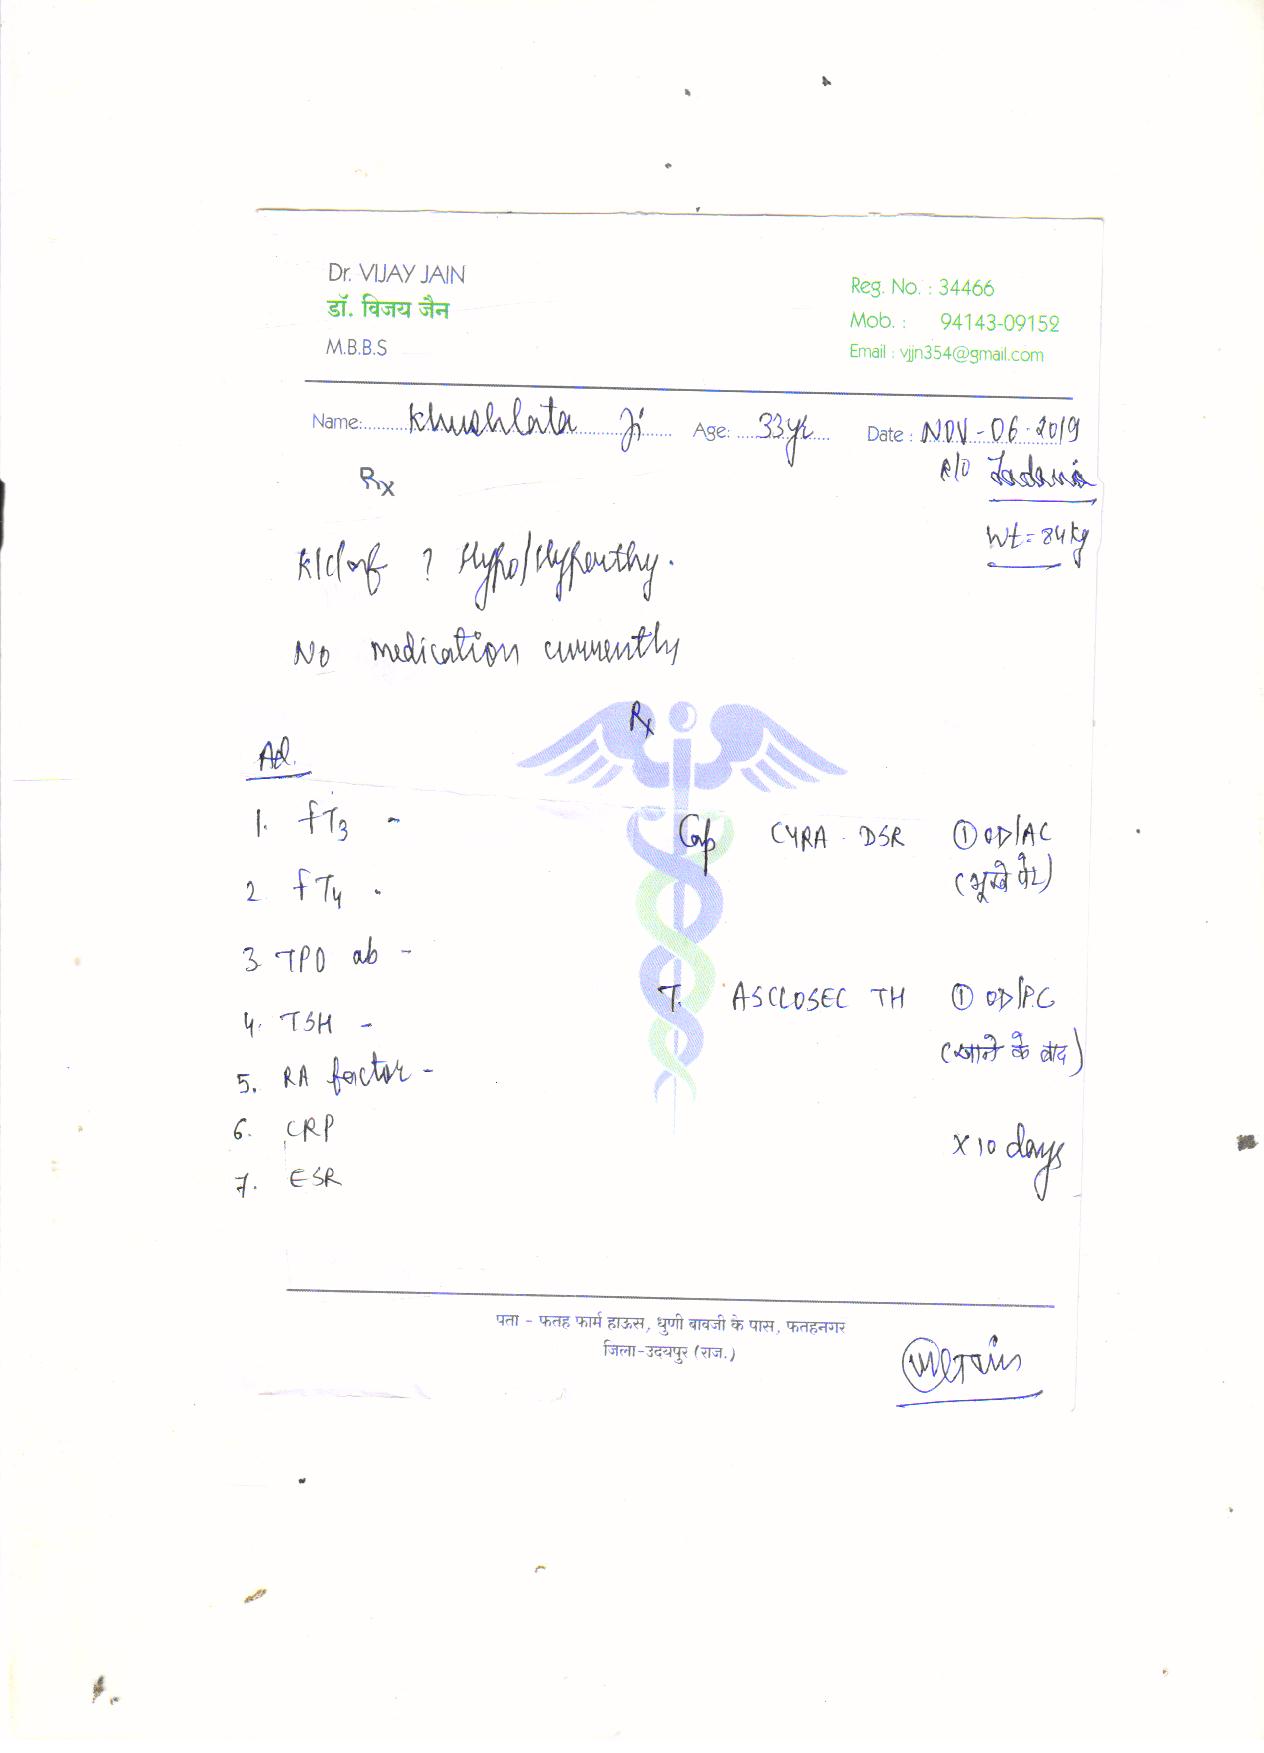 Dr. VIJAY JAIN
डॉ. विजय जैन
M.B.B.S
Reg. No. : 34466
Mob. : 94143-09152
Email : vjjn354@gmail.com
Name:.......... Khushlata Ji ...... Age: .... 33yr .... Date : NOV-06-2019
R/O
Wt = 84kg
Rx
K/c/o of ? Hypo/Hyperthy.
No medication currently
Rx
Ad.
1. fT3 -
2 fT4 -
3 TPO ab -
4. TSH -
5. RA factor -
6. CRP
7. ESR
Cap CYRA - DSR ① OD/AC
(भूखे पेट)
T. ASCLOSEC TH ① OD/PC
(खाने के बाद)
x 10 days
पता - फतह फार्म हाऊस, धुणी बावजी के पास, फतहनगर
जिला-उदयपुर (राज.)